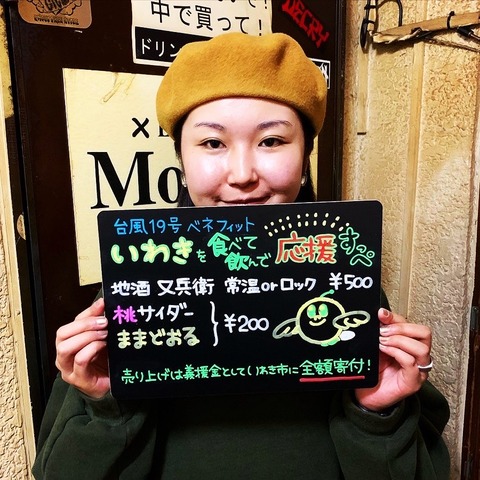 中で買って！
ドリン
DECRY
×
Mo
台風19号 ベネフィット
いわきを食べて飲んで応援すっぺ
地酒 又兵衛 常温orロック ¥500
桃サイダー
ままどおる
¥200
売り上げは義援金としていわき市に全額寄付！